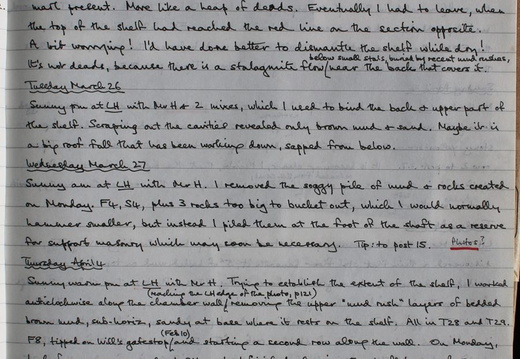 mart present. More like a heap of deads. Eventually I had to leave, when
the top of the shelf had reached the red line on the section opposite.
A bit worrying! I'd have done better to dismantle the shelf while dry!
below small stals, buried by recent mud rushes,
It's not deads, because there is a stalagmite flow near the back that covers it.
Tuesday March 26
Sunny pm at LH with Mr H & 2 mixes, which I used to bind the back & upper part of
the shelf. Scraping out the cavities revealed only brown mud & sand. Maybe it is
a big roof fall that has been working down, sapped from below.
Wednesday March 27
Sunny am at LH with Mr H. I removed the soggy pile of mud & rocks created
on Monday. F4, S4, plus 3 rocks too big to bucket out, which I would normally
hammer smaller, but instead I piled them at the foot of the shaft as a reserve
for support masonry which may soon be necessary. Tip: to post 15. Photos?
Thursday April 4
Sunny warm pm at LH with Mr H. Trying to establish the extent of the shelf, I worked
(reaching the LH edge of the photo, p121)
anticlockwise along the chamber wall, removing the upper "mud rush" layers of bedded
brown mud, sub-horiz, sandy at base where it rests on the shelf. All in T28 and T29.
(Feb 10)
F8, tipped on Will's gatestop and starting a second row along the wall. On Monday,